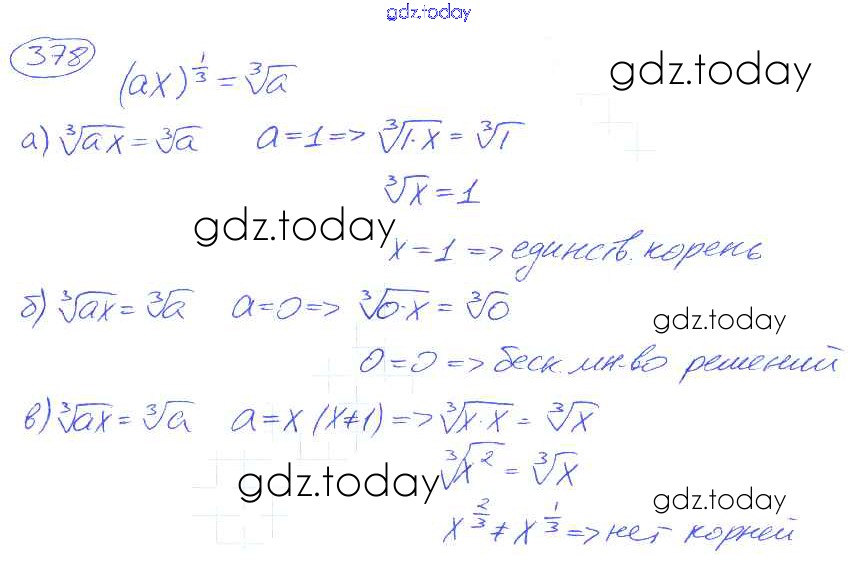 gdz.today
378
(ax)^{1/3} = ∛a
gdz.today
а) ∛ax = ∛a a = 1 => ∛1·x = ∛1
∛x = 1
gdz.today
x = 1 => единств. корень
б) ∛ax = ∛a a = 0 => ∛0·x = ∛0
gdz.today
0 = 0 => беск. мн-во решений
в) ∛ax = ∛a a = x (x≠1) => ∛x·x = ∛x
∛x² = ∛x
gdz.today
gdz.today
x^{2/3} ≠ x^{1/3} => нет корней